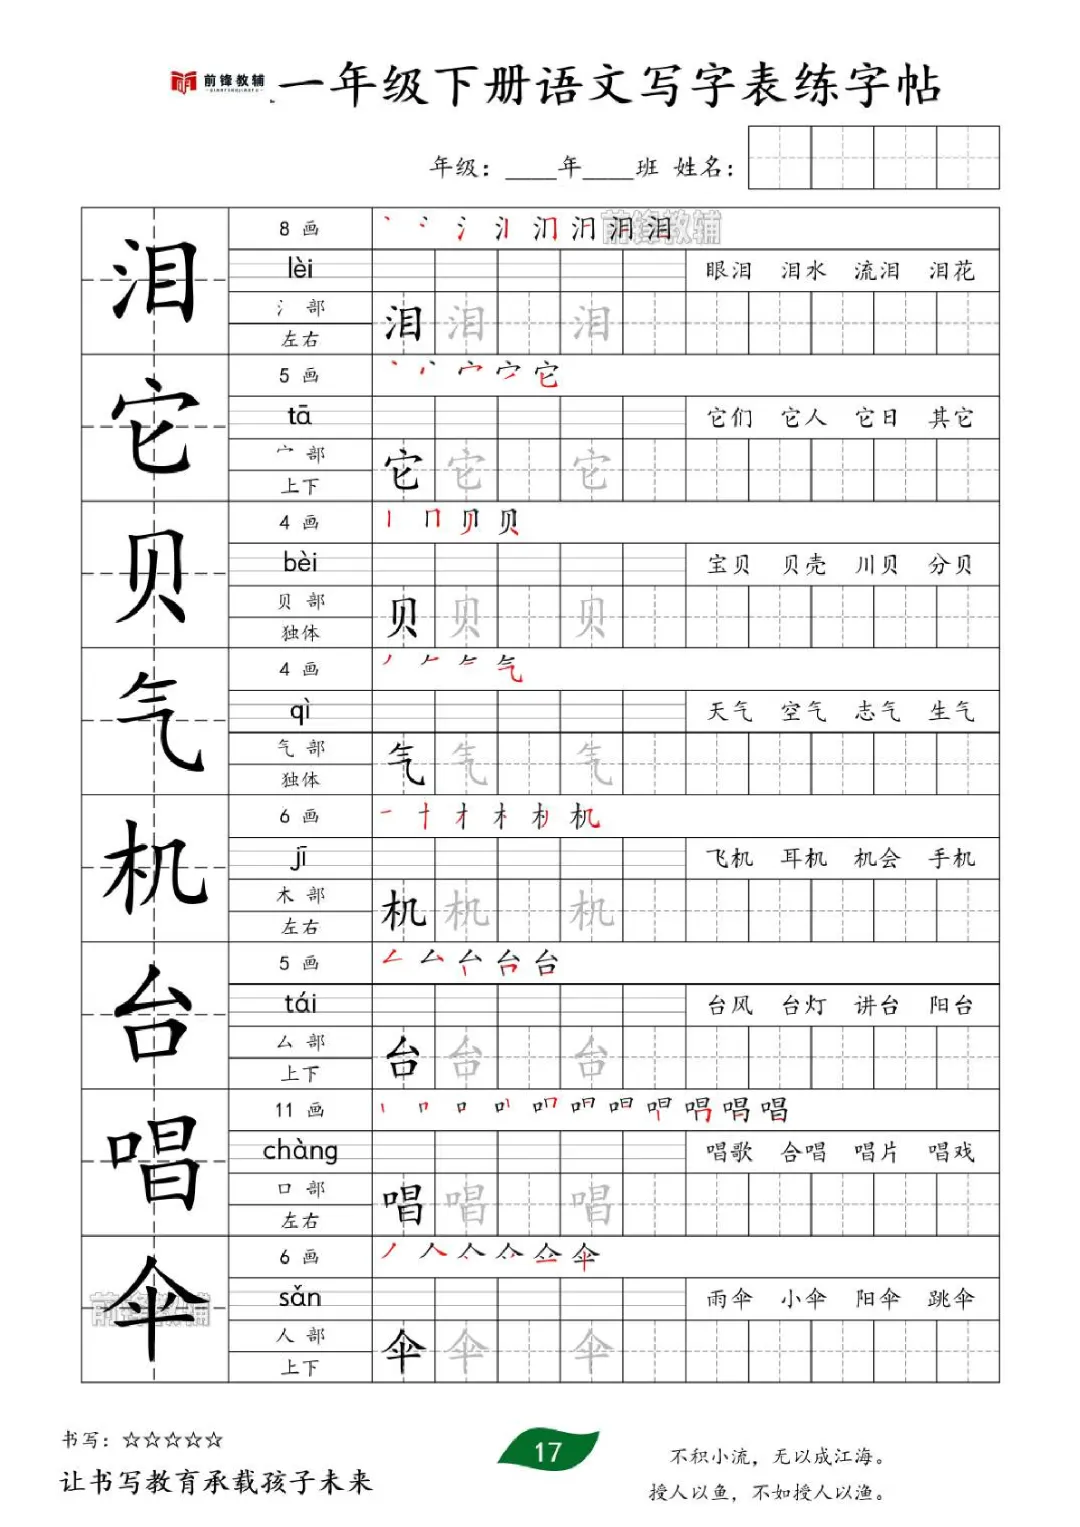 前锋教辅 一年级下册语文写字表练字帖
年级：____年____班 姓名：
泪
8 画
前锋教辅
lèi
眼泪 泪水 流泪 泪花
氵 部
左右
泪 泪 泪
它
5 画
tā
它们 它人 它日 其它
宀 部
上下
它 它 它
贝
4 画
bèi
宝贝 贝壳 川贝 分贝
贝 部
独体
贝 贝 贝
气
4 画
qì
天气 空气 志气 生气
气 部
独体
气 气 气
机
6 画
jī
飞机 耳机 机会 手机
木 部
左右
机 机 机
台
5 画
tái
台风 台灯 讲台 阳台
厶 部
上下
台 台 台
唱
11 画
chàng
唱歌 合唱 唱片 唱戏
口 部
左右
唱 唱 唱
伞
前锋教辅
6 画
sǎn
雨伞 小伞 阳伞 跳伞
人 部
上下
伞 伞 伞
书写：☆☆☆☆☆
让书写教育承载孩子未来
17
不积小流，无以成江海。
授人以鱼，不如授人以渔。